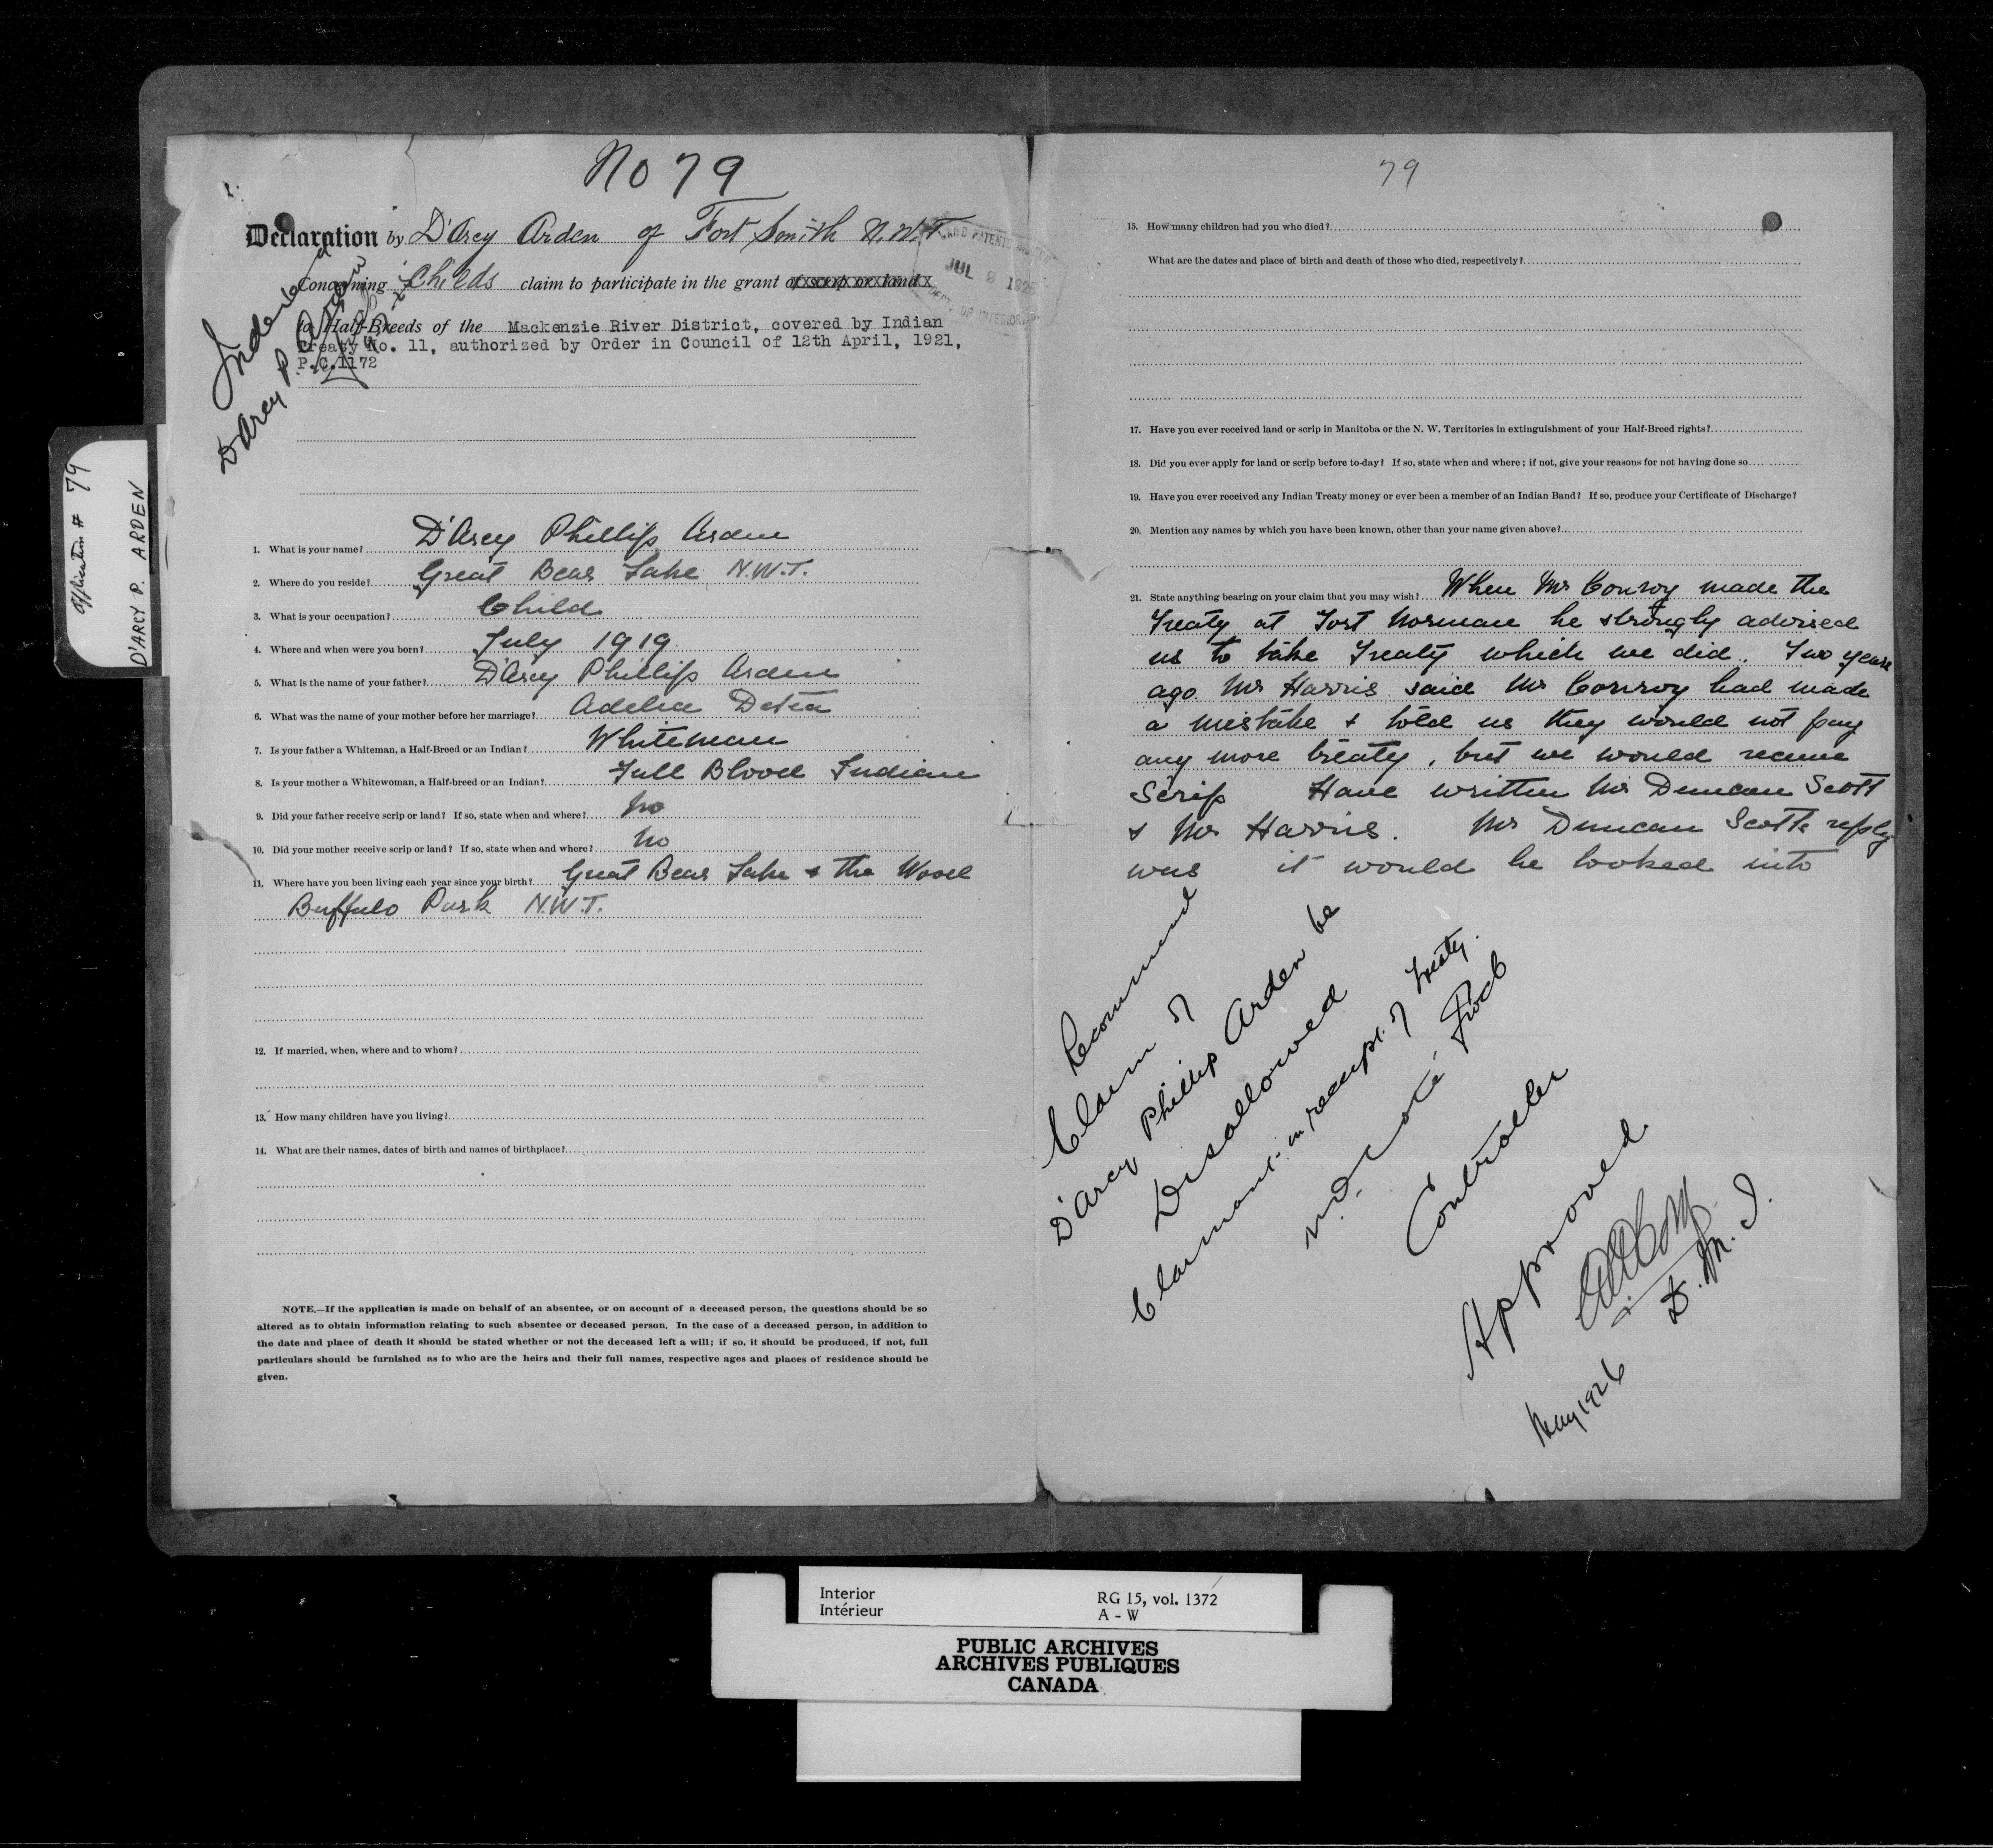 Application # 79
D'ARCY P. ARDEN
No 79
Declaration by D'Arcy Arden of Fort Smith N.W.T
Concerning Childs claim to participate in the grant of scrip or land
to Half-Breeds of the Mackenzie River District, covered by Indian
Treaty No. 11, authorized by Order in Council of 12th April, 1921,
P.C.1172
LAND PATENTS
JUL 8 192
DEPT. OF INTERIOR
Indexed
D'Arcy P. Arden
1. What is your name? D'Arcy Phillip Arden
2. Where do you reside? Great Bear Lake N.W.T.
3. What is your occupation? Child
4. Where and when were you born? July 1919
5. What is the name of your father? D'Arcy Phillip Arden
6. What was the name of your mother before her marriage? Adelia
7. Is your father a Whiteman, a Half-Breed or an Indian? Whiteman
8. Is your mother a Whitewoman, a Half-breed or an Indian? Full Blood Indian
9. Did your father receive scrip or land? If so, state when and where? No
10. Did your mother receive scrip or land? If so, state when and where? No
11. Where have you been living each year since your birth? Great Bear Lake & the Wood
Buffulo Park N.W.T.
12. If married, when, where and to whom?
13. How many children have you living?
14. What are their names, dates of birth and names of birthplace?
NOTE.—If the application is made on behalf of an absentee, or on account of a deceased person, the questions should be so
altered as to obtain information relating to such absentee or deceased person. In the case of a deceased person, in addition to
the date and place of death it should be stated whether or not the deceased left a will; if so, it should be produced, if not, full
particulars should be furnished as to who are the heirs and their full names, respective ages and places of residence should be
given.
79
15. How many children had you who died?
What are the dates and place of birth and death of those who died, respectively?
17. Have you ever received land or scrip in Manitoba or the N. W. Territories in extinguishment of your Half-Breed rights?
18. Did you ever apply for land or scrip before to-day? If so, state when and where; if not, give your reasons for not having done so
19. Have you ever received any Indian Treaty money or ever been a member of an Indian Band? If so, produce your Certificate of Discharge?
20. Mention any names by which you have been known, other than your name given above?
21. State anything bearing on your claim that you may wish? When Mr Conroy made the
Treaty at Fort Norman he strongly advised
us to take Treaty which we did. Two years
ago Mr Harris said Mr Conroy had made
a mistake & told us they would not pay
any more treaty, but we would receive
Scrip Have written Mr Duncan Scott
& Mr Harris. Mr Duncan Scotts reply
was it would be looked into
Recommend
Claim of
D'Arcy Phillip Arden be
Disallowed
Claimant in receipt of treaty.
Controller
Approved
D. M. I.
May 1926
Interior
Intérieur
RG 15, vol. 1372
A - W
PUBLIC ARCHIVES
ARCHIVES PUBLIQUES
CANADA